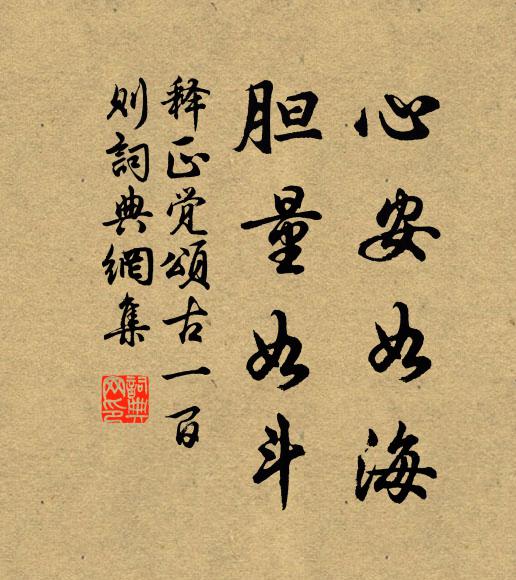 心安如海
胆量如斗
释正觉颂古一百
则詞典網集
詞典
网印